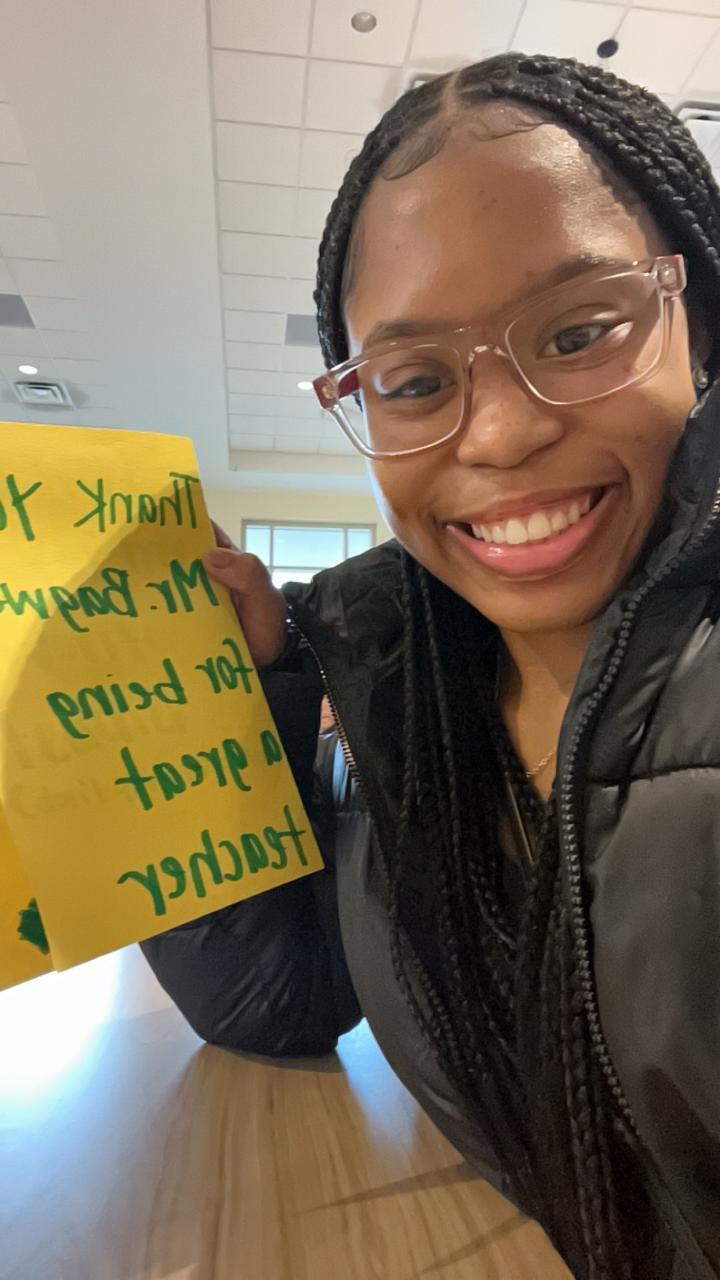 Thank Yo
Mr. Bagw
for being
a great
teacher